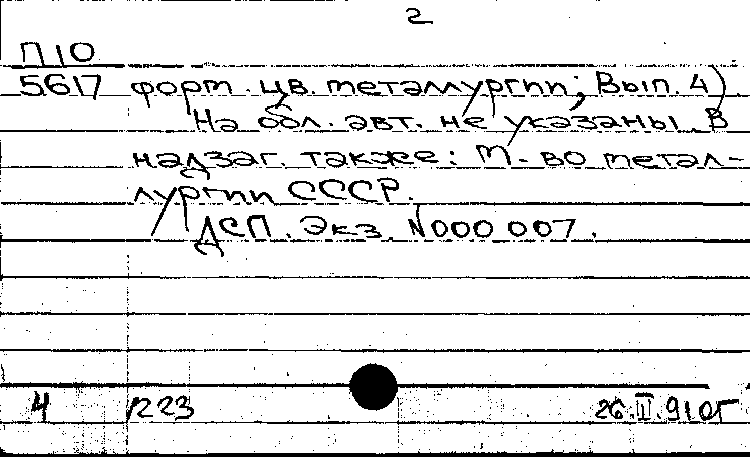 2
П10
5617 форт. цв. металлургии; Вып. 4)
На обл. авт. не указаны. В
надзаг. также: М-во метал-
лургии СССР.
ДСП. Экз. N000 007.
4 1223 26.II.91